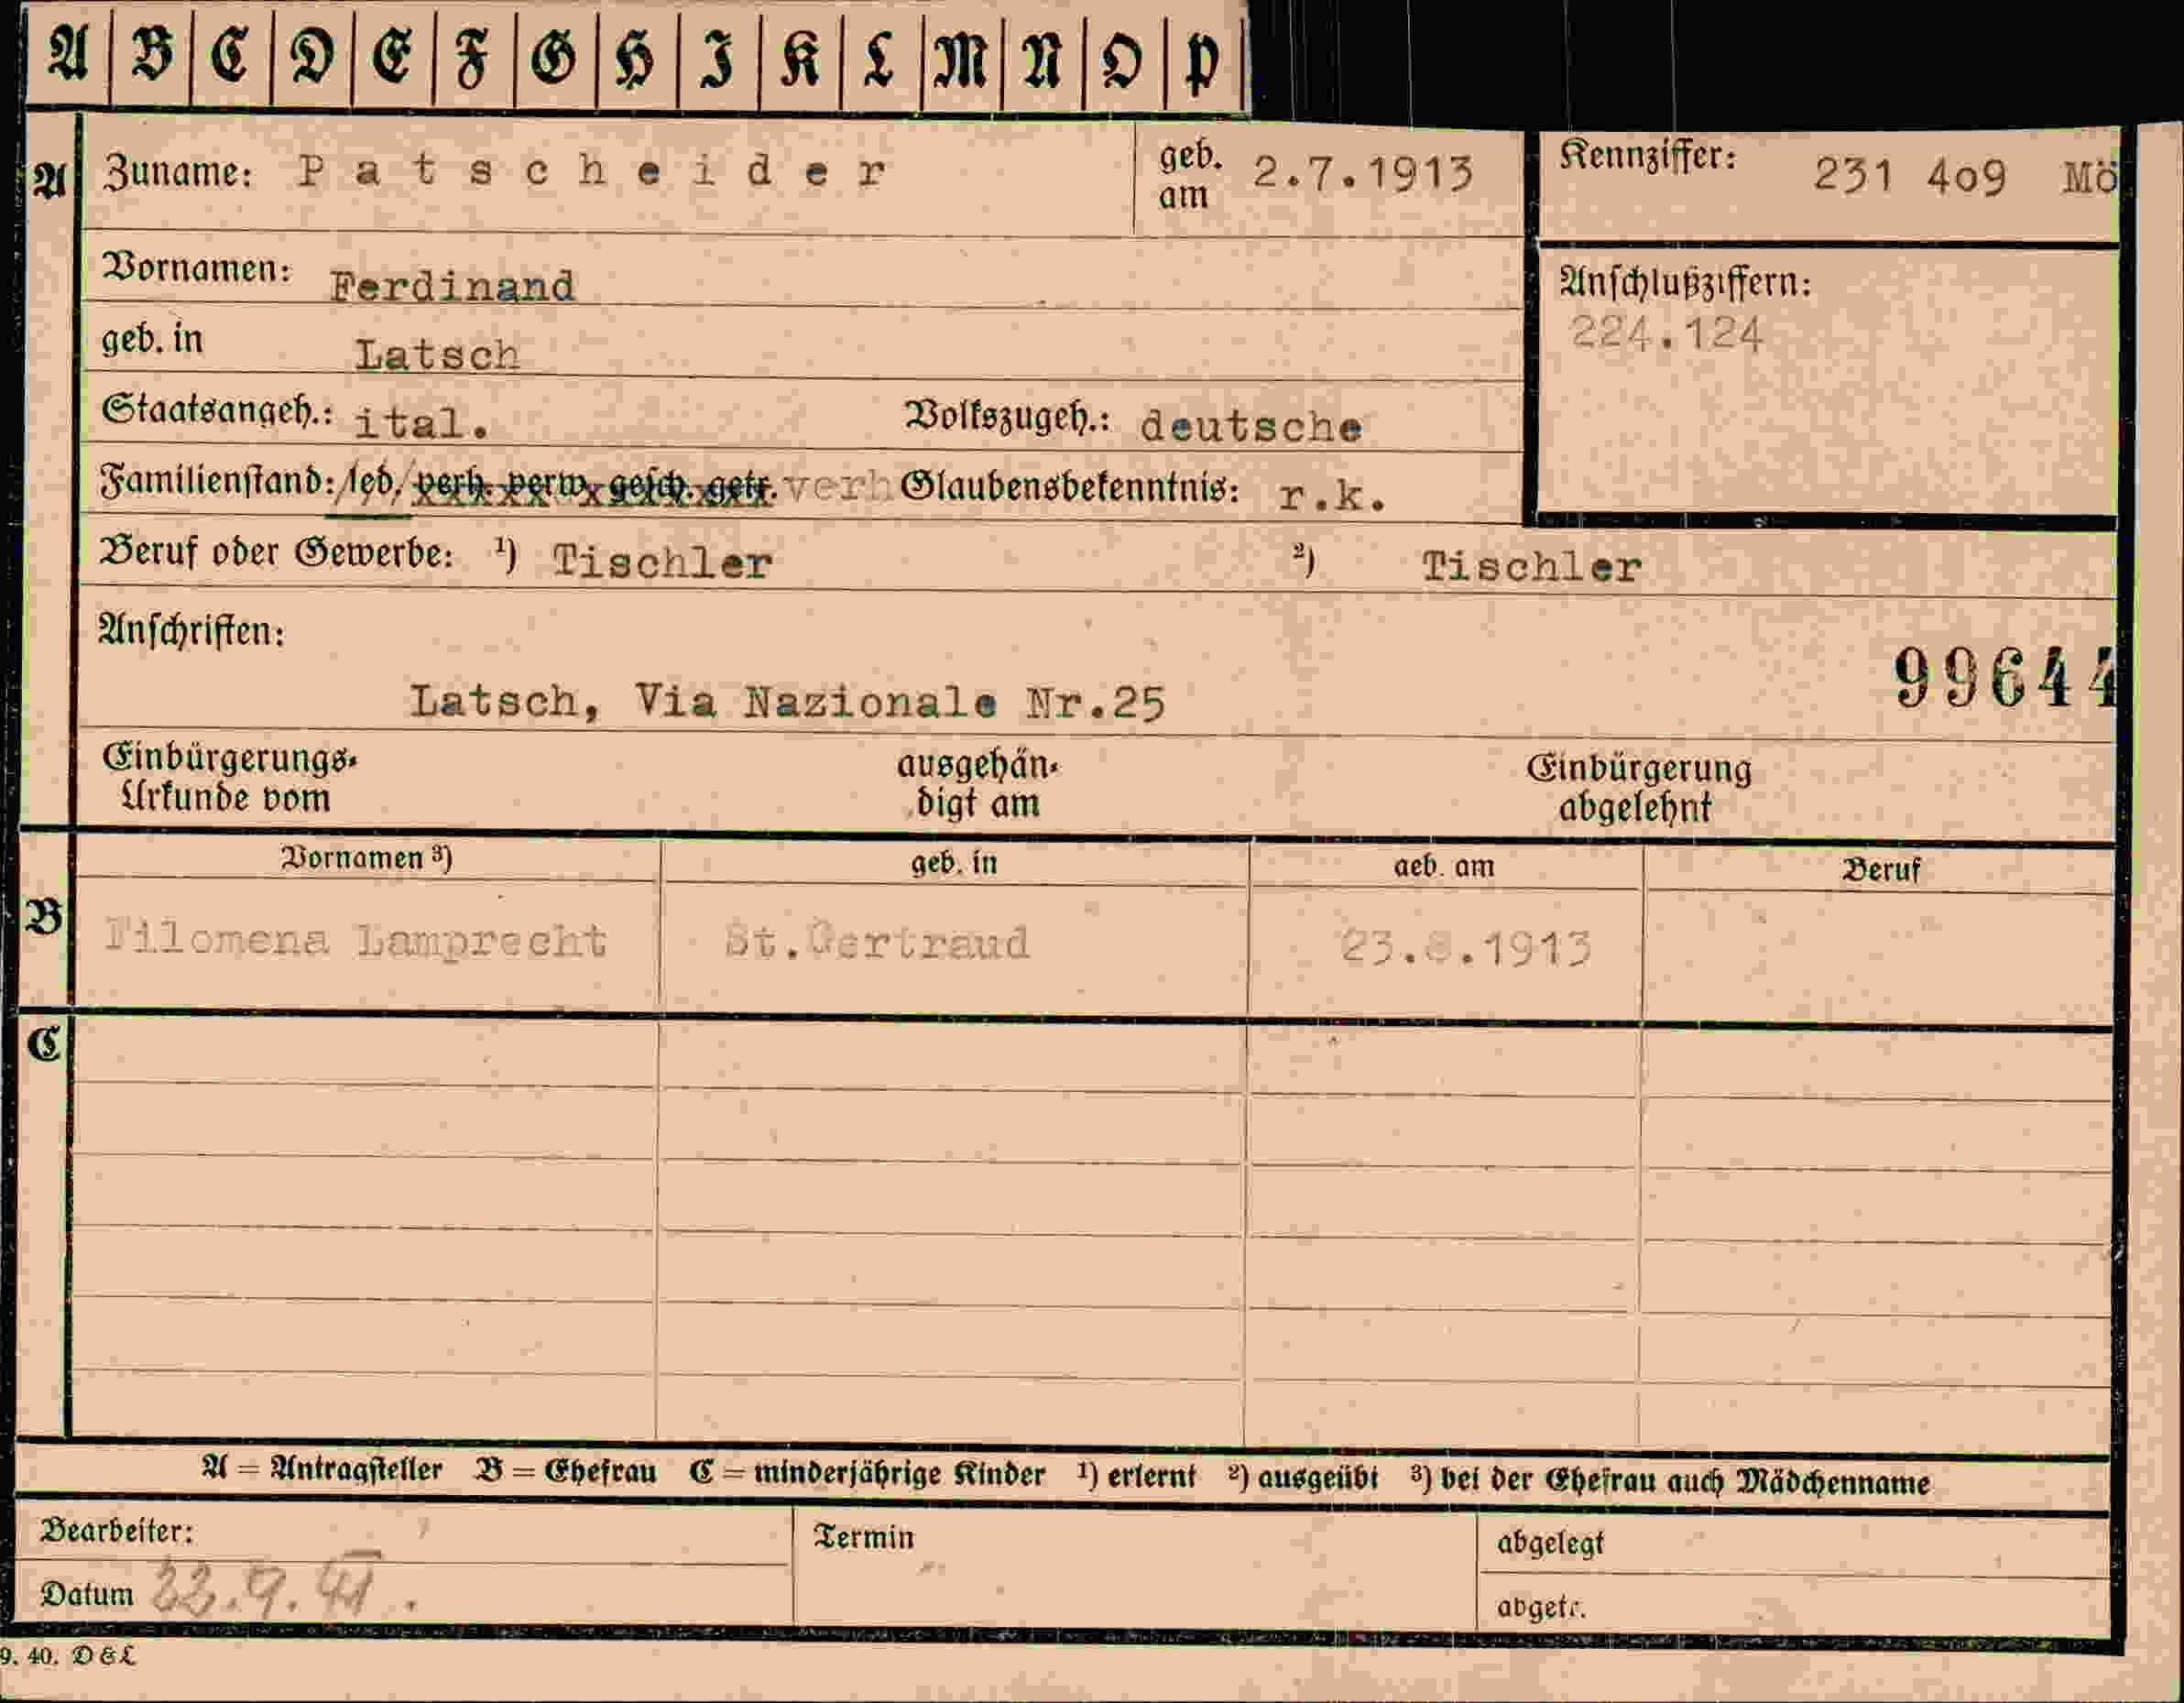 A B C D E F G H I K L M N O P
A Zuname: Patscheider geb. am 2.7.1913 Kennziffer: 231 4o9 Mö
Vornamen: Ferdinand
Anschlußziffern:
224.124
geb. in Latsch
Staatsangeh.: ital. Volkszugeh.: deutsche
Familienstand: led. verh. verw. gesch. getr. verh Glaubensbekenntnis: r.k.
Beruf oder Gewerbe: ¹) Tischler ²) Tischler
Anschriften:
99644
Latsch, Via Nazionale Nr.25
Einbürgerungs- ausgehän- Einbürgerung
Urkunde vom digt am abgelehnt
Vornamen ³) geb. in geb. am Beruf
B Filomena Lamprecht St.Gertraud 23.8.1913
C
A = Antragsteller B = Ehefrau C = minderjährige Kinder ¹) erlernt ²) ausgeübt ³) bei der Ehefrau auch Mädchenname
Bearbeiter: Termin abgelegt
Datum 22.9.41. abgetr.
9. 40. D & L